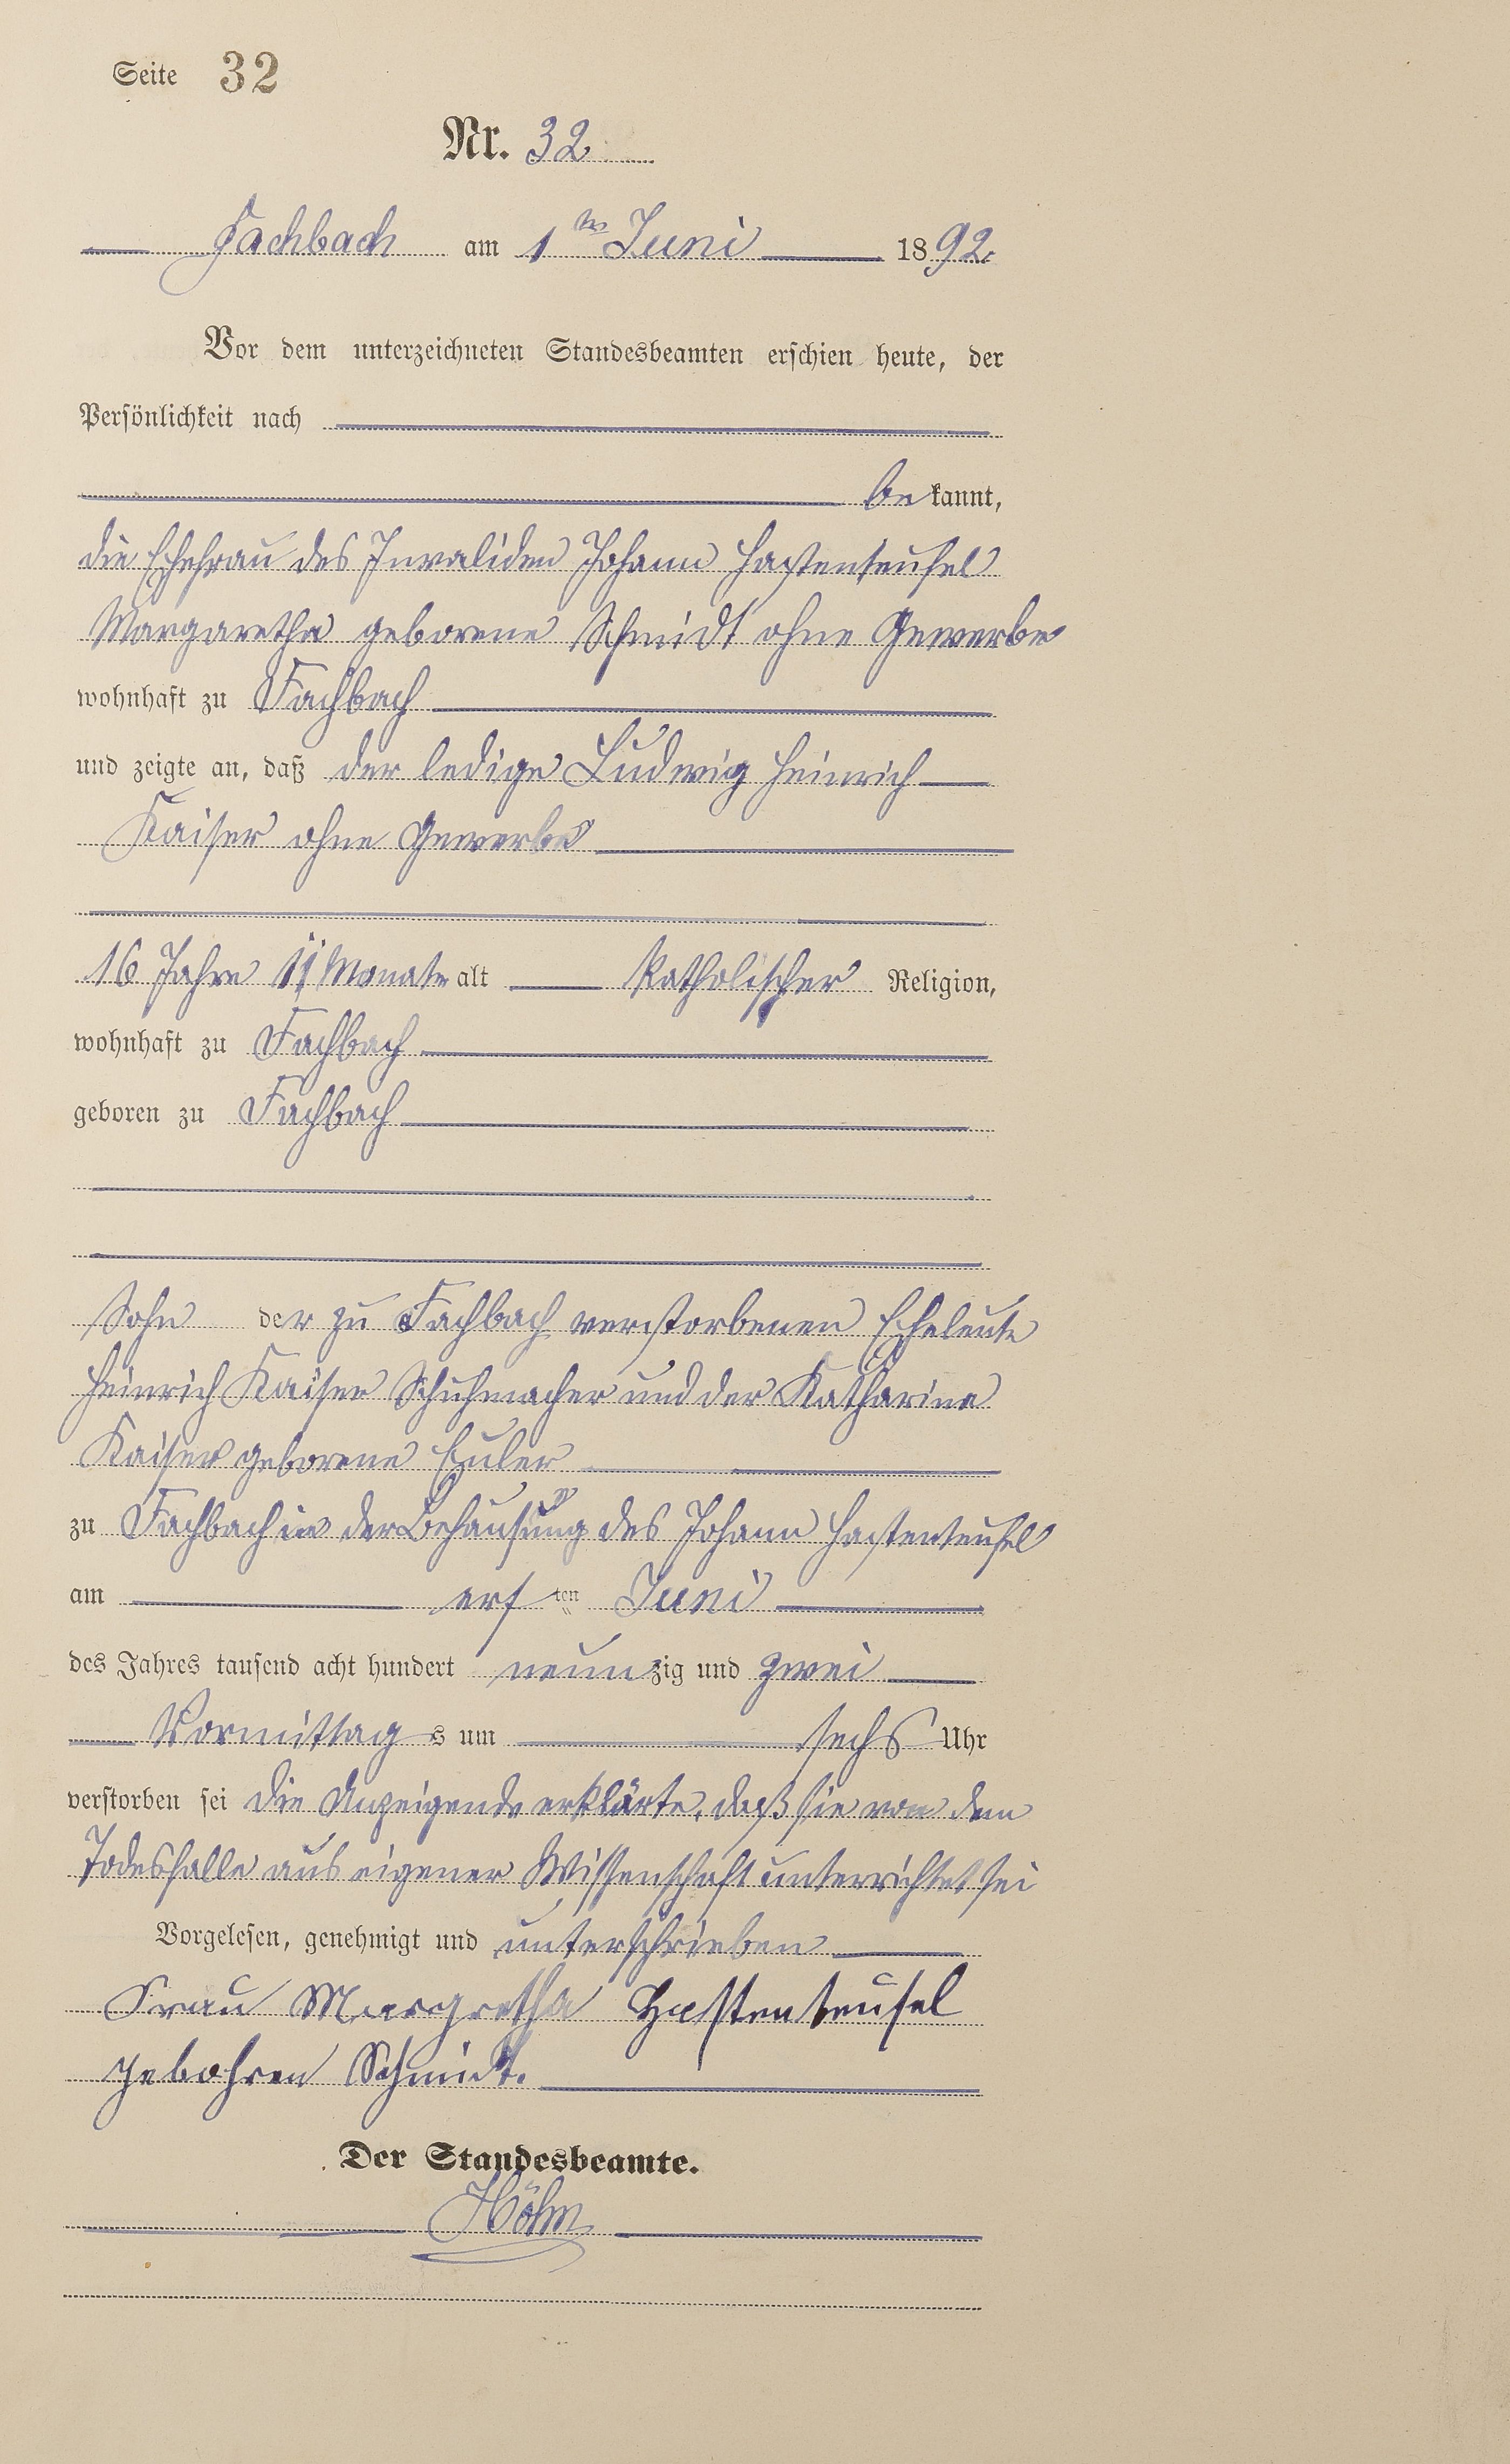 Seite 32
Nr. 32
Fachbach am 1ten Juni 1892.
Vor dem unterzeichneten Standesbeamten erschien heute, der
Persönlichkeit nach
bekannt,
die Ehefrau des Invaliden Johann Hastenteufel
Margaretha geborene Schmidt ohne Gewerbe
wohnhaft zu Fachbach
und zeigte an, daß der ledige Ludwig Heinrich
Kaiser ohne Gewerbe
16 Jahre 11 Monate alt katholischer Religion,
wohnhaft zu Fachbach
geboren zu Fachbach
Sohn der zu Fachbach verstorbenen Eheleute
Heinrich Kaiser Schuhmacher und der Katharina
Kaiser geborene Euler
zu Fachbach in der Behausung des Johann Hastenteufel
am ersten Juni
des Jahres tausend acht hundert neunzig und zwei
Vormittags um sechs Uhr
verstorben sei die Anzeigende erklärte, daß sie von dem
Todesfalle aus eigener Wissenschaft unterrichtet sei
Vorgelesen, genehmigt und unterschrieben
Frau Margretha Hastenteufel
gebohren Schmidt.
Der Standesbeamte.
Höhn